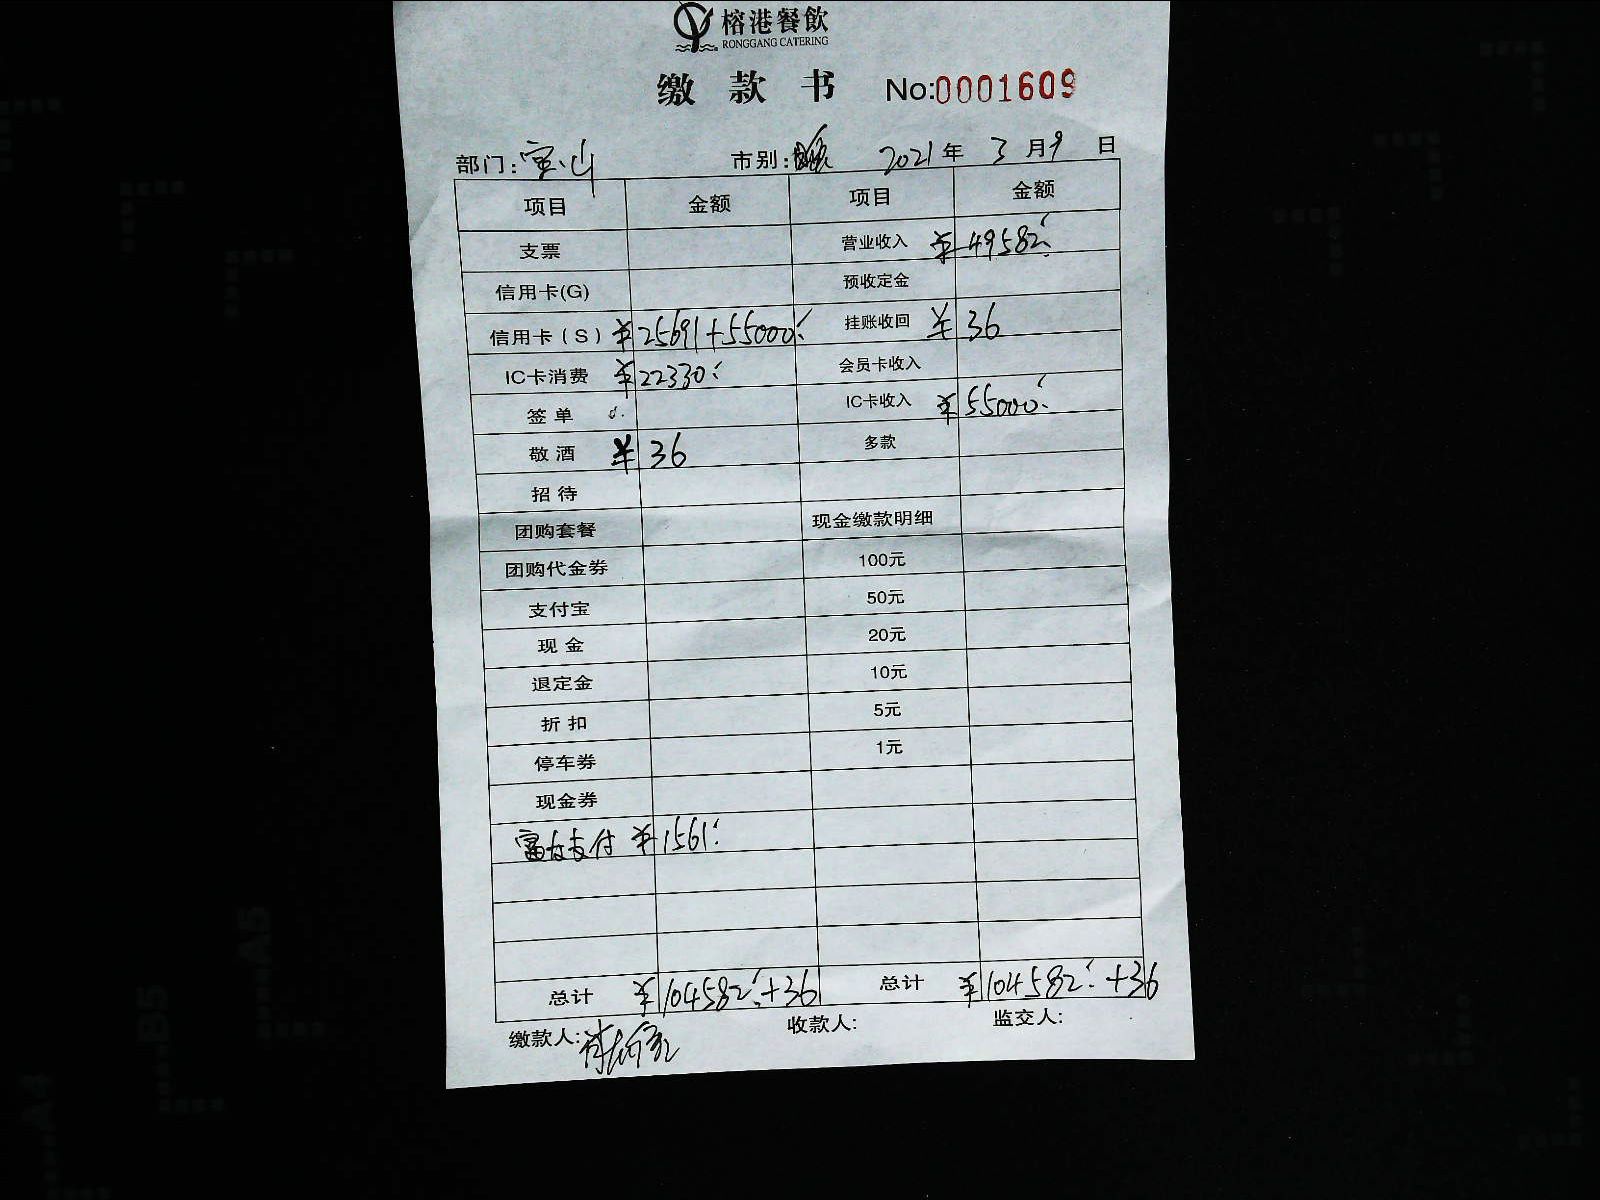 榕港餐飲
RONGGANG CATERING
缴款书 No:0001609
部门:宝山 市别:晚 2021年3月9日
项目 金额 项目 金额
支票 营业收入 ¥49582
信用卡(G) 预收定金
信用卡(S) ¥25691+55000 挂账收回 ¥36
IC卡消费 ¥22330 会员卡收入
签单 IC卡收入 ¥55000
敬酒 ¥36 多款
招待
团购套餐 现金缴款明细
团购代金券 100元
支付宝 50元
现金 20元
退定金 10元
折扣 5元
停车券 1元
现金券
富友支付 ¥1561
总计 ¥104582+36 总计 ¥104582+36
缴款人: 收款人: 监交人: